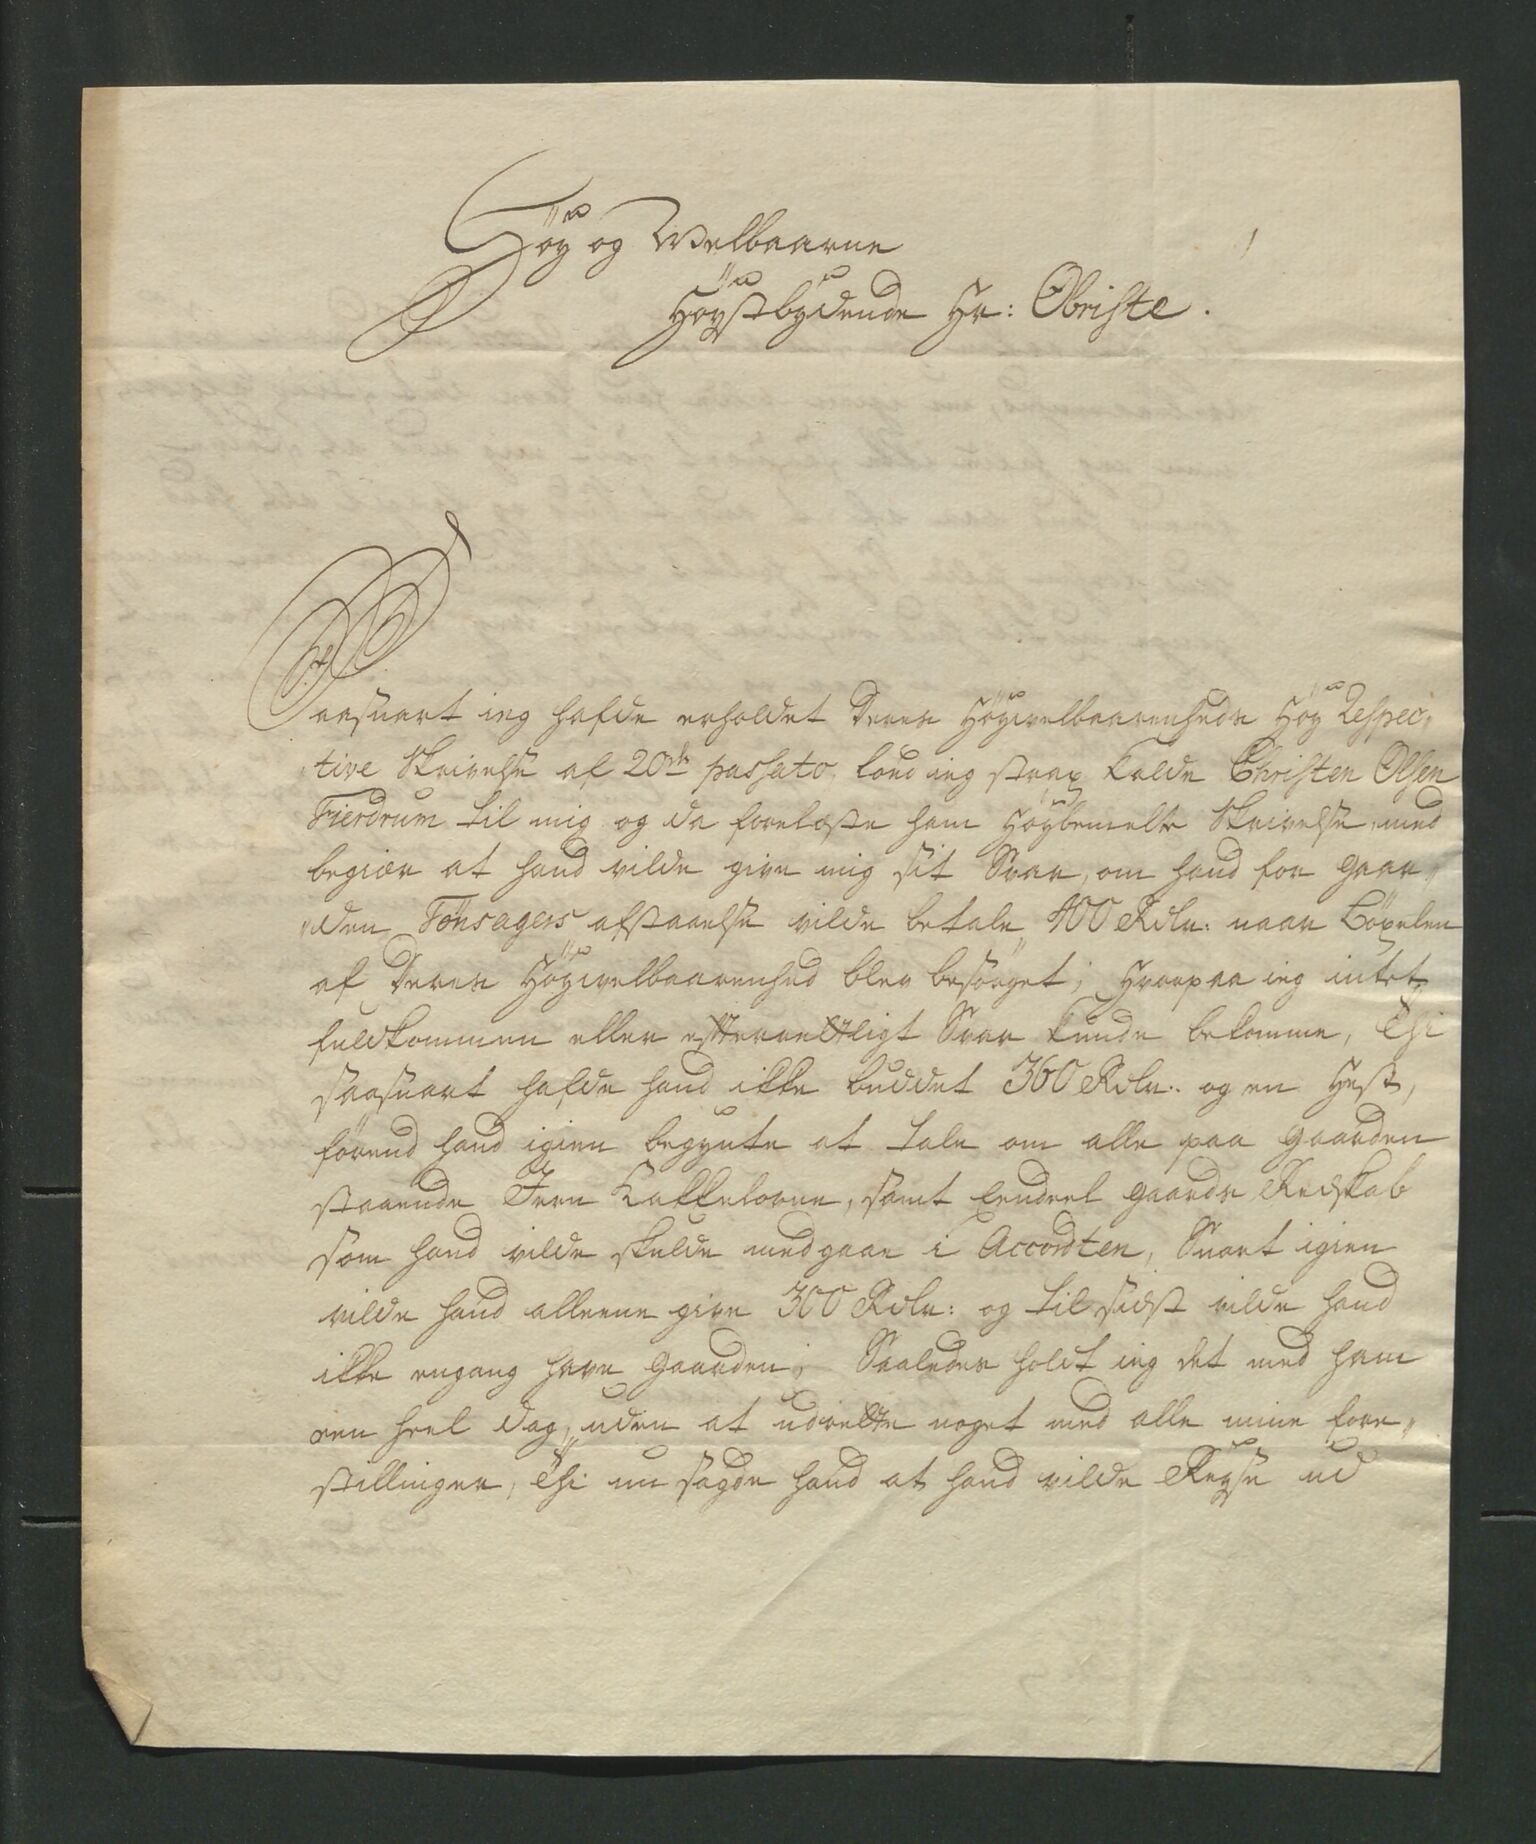 Höy og Welbaarne
Höystbydende Hr: Obriste.
Saasnart ieg hafde erholdet Deres Höyvelbaarenheds Höy Respec,,
,,tive Skrivelse af 20de passato, loed ieg strax kalde Christen Olsen
Fierdrum til mig og da forelæste ham Höybemelte Skrivelse, med
begiær at hand vilde give mig sit Svar, om hand for gaar,,
,,den Tönsagers afstaaelse vilde betale 400 Rdlr: naar
af Deres Höyvelbaarenhed blev besörget; Hvorpaa ieg intet
fuldkommen eller efterrettligt Svar kunde bekomme, Thi
saasnart hafde hand ikke buddet 360 Rdlr: og en Hest,
förend hand igien begynte at tale om alle paa Gaarden
staaende Jern Kakkelovne, samt Eendeel gaards Redskab
som hand vilde skulde medgaae i Accordten, Snart igien
vilde hand alleene give 300 Rdlr: og til sidst vilde hand
ikke engang have Gaarden; Saaledes holdt ieg det med ham
een heel dag, uden at udrette noget med alle mine fore,,
stillinger, Thi nu sagde hand at hand vilde Reyse ud